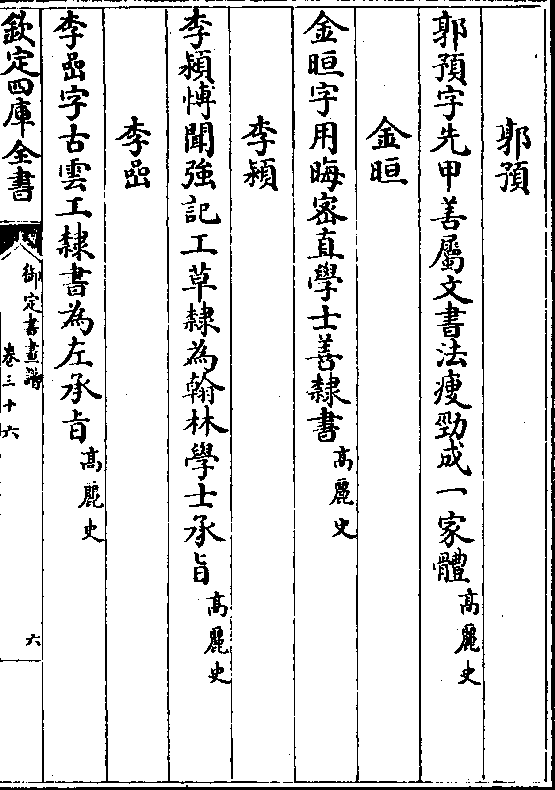 郭預
郭預字先甲善屬文書法瘦勁成一家體高麗史
金晅
金晅字用晦密直學士善隸書高麗史
李穎
李穎博聞強記工草隸為翰林學士承旨高麗史
李嵒
李嵒字古雲工隸書為左承旨高麗史
欽定四庫全書
御定書畫譜
卷三十六
六